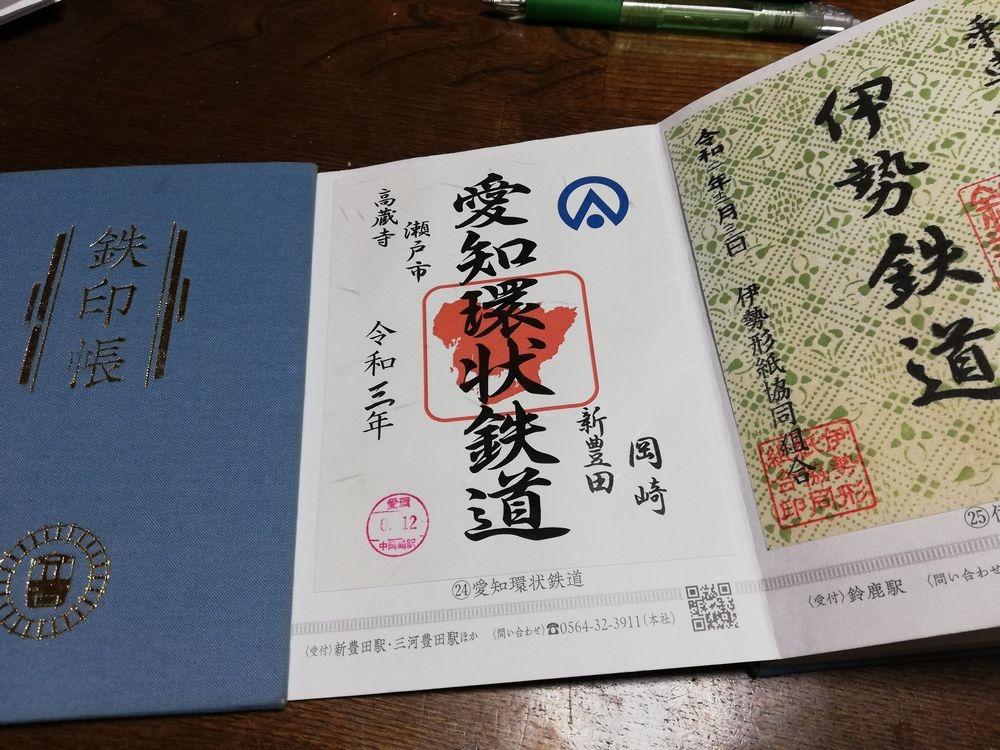 鉄印帳
愛知環状鉄道
岡崎
新豊田
瀬戸市
高蔵寺
令和三年
愛環
8.12
中岡崎駅
㉔愛知環状鉄道
〈受付〉新豊田駅・三河豊田駅ほか 〈問い合わせ〉☎0564-32-3911(本社)
伊勢鉄道
伊勢形紙協同組合
伊勢形
紙協同
組合印
㉕伊
〈受付〉鈴鹿駅 〈問い合わせ